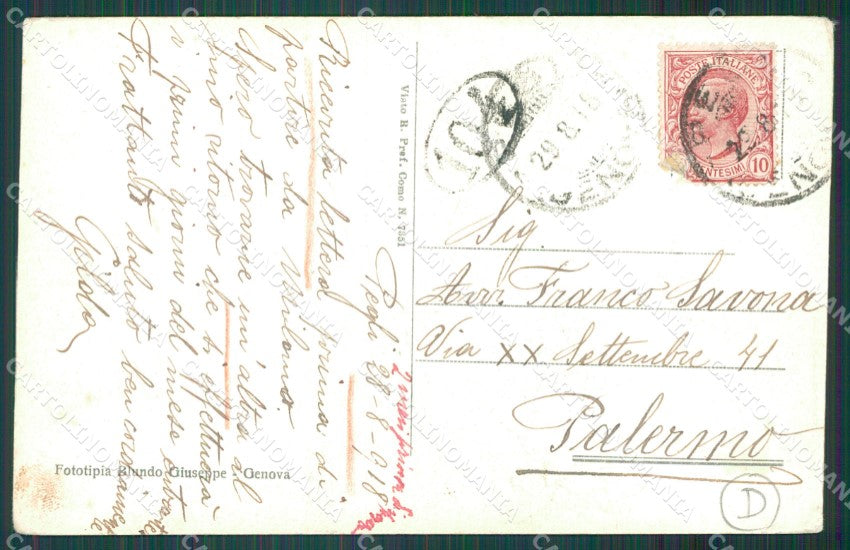 Pegli 28-8-918
Ricevuta lettera prima di
partire da Milano
Spero trovarne un'altra al
mio ritorno che si effettuerà
i primi giorni del mese entrante
Frattanto saluto ben caramente
Gilda
Visto R. Pref. Como N. 7351
Fototipia Blundo Giuseppe - Genova
POSTE ITALIANE
CENTESIMI 10
29.8.18
GENO
10
Sig.
Avv. Franco Savona
Via XX Settembre 41
Palermo
D
CARTOLINOMANIA